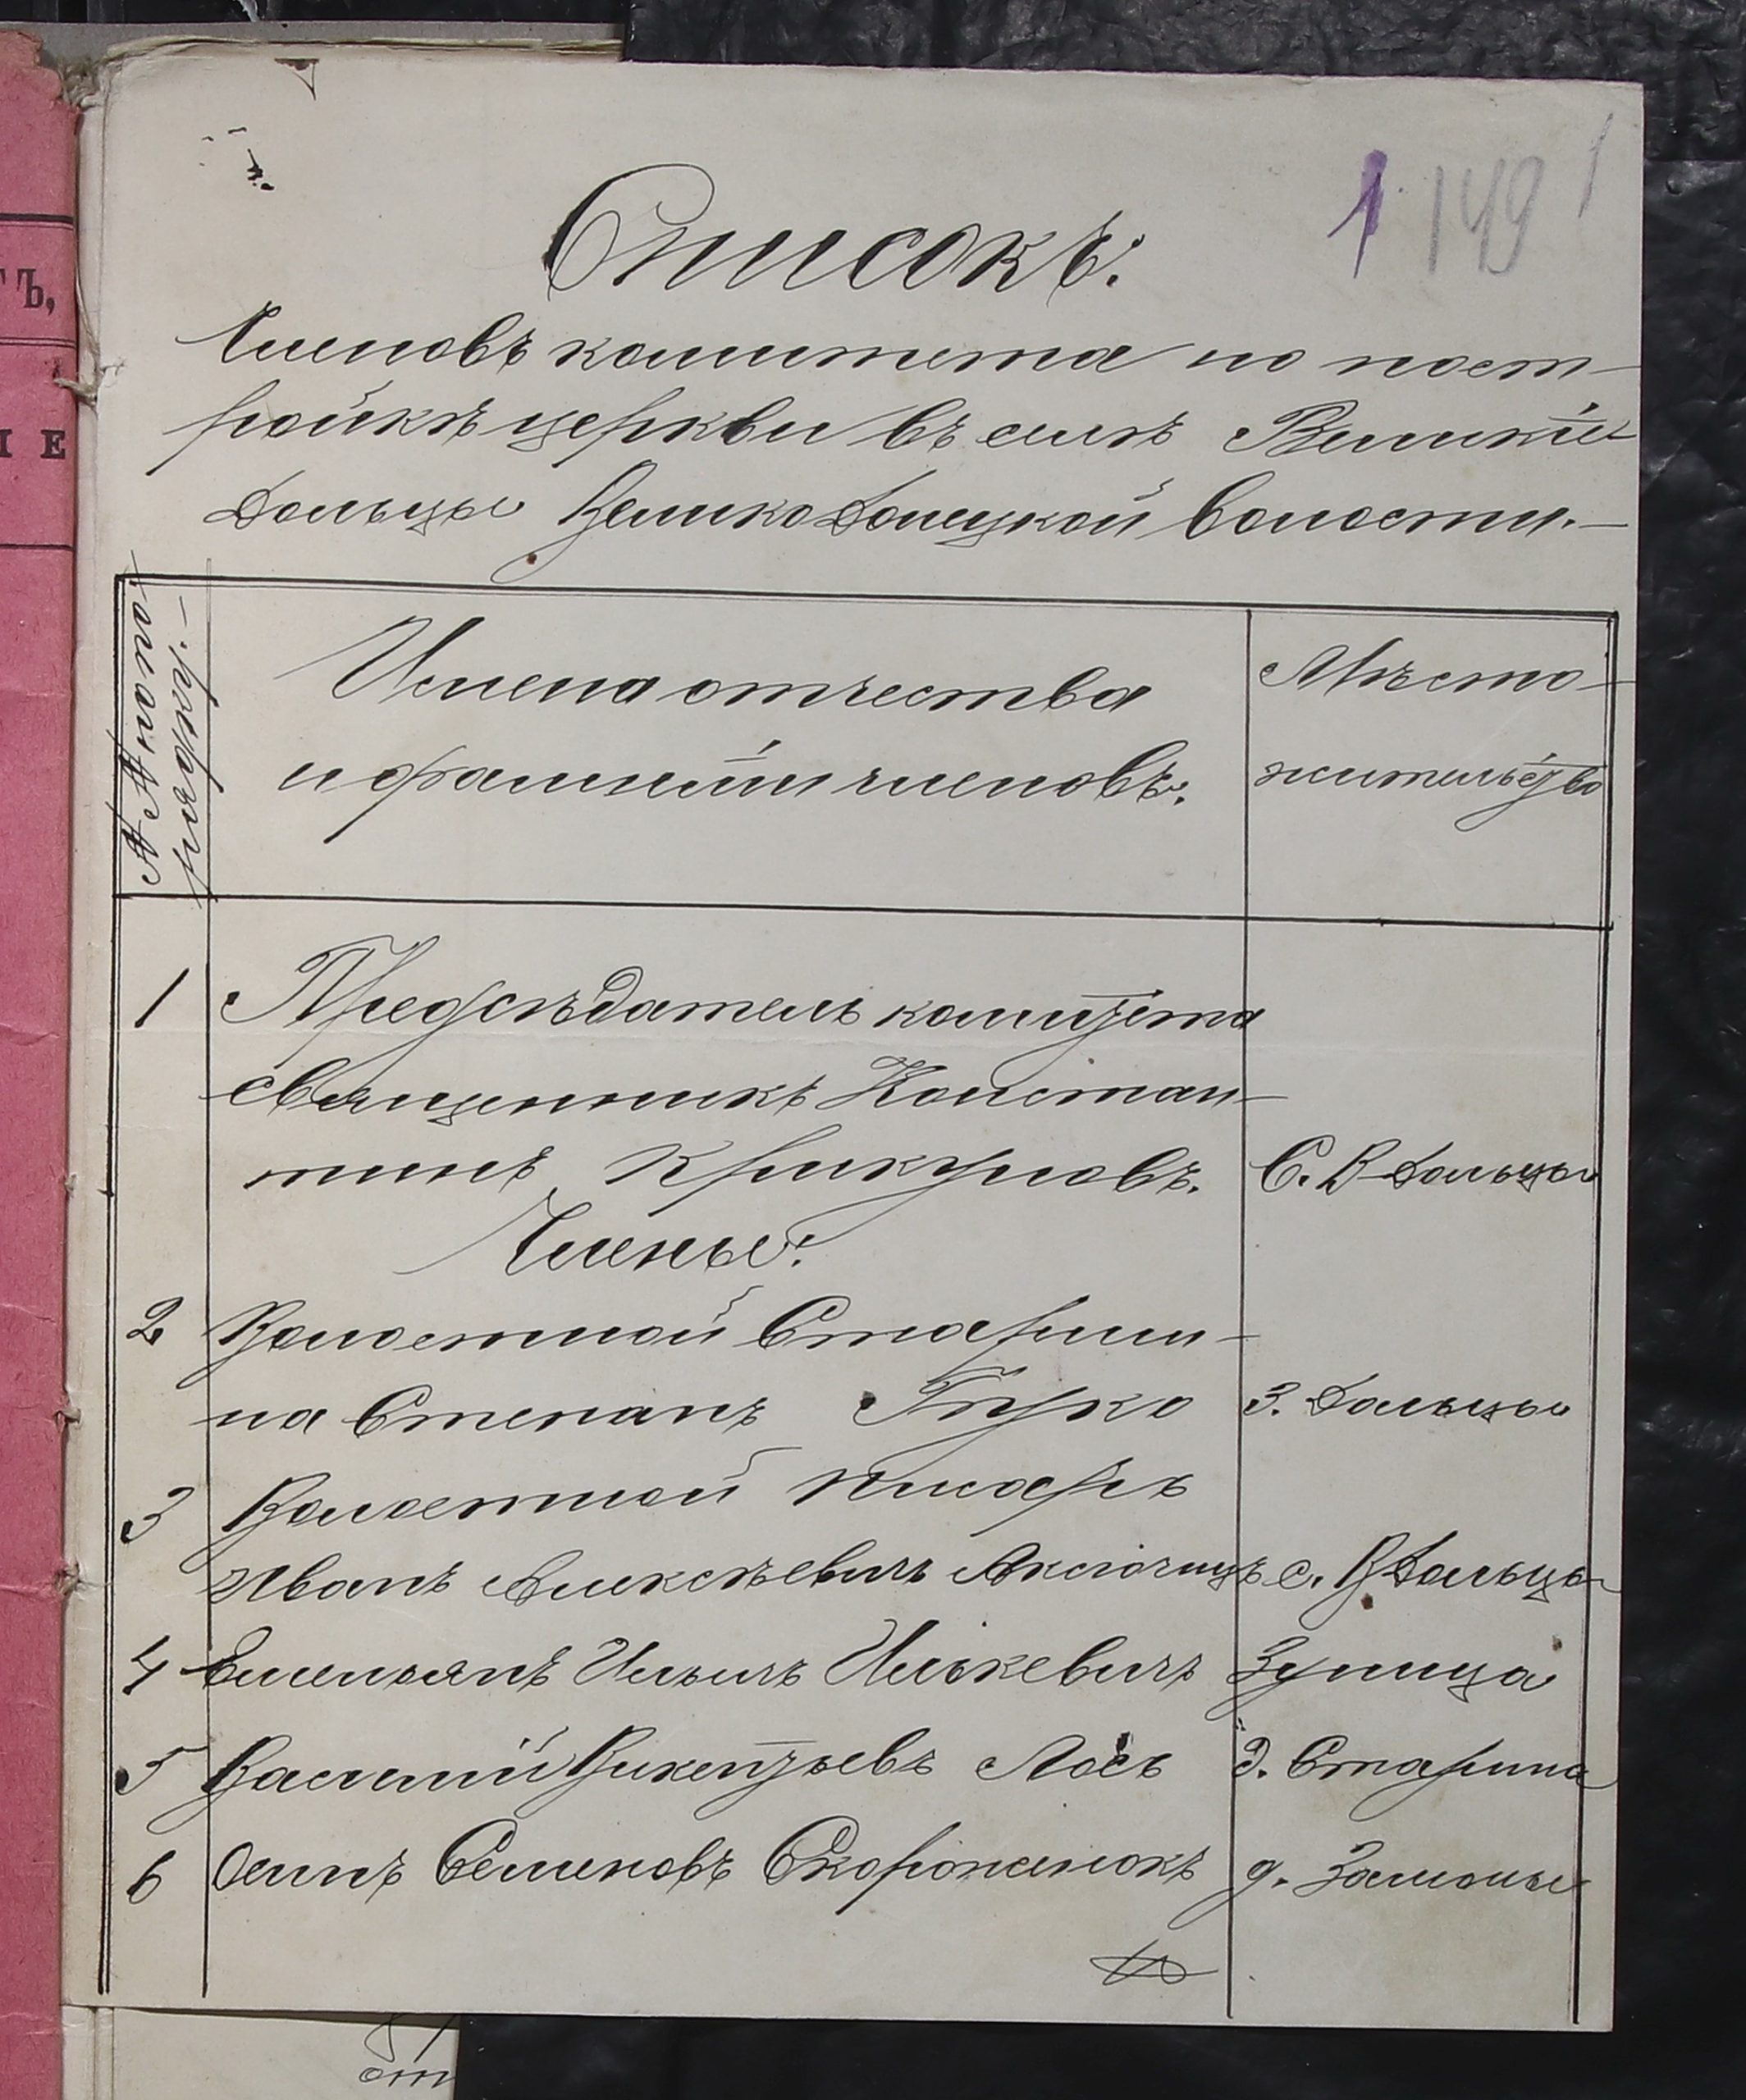 1 149 1
Списокъ.
Членовъ комитета по пост-
ройкѣ церкви въ селѣ Великіе
Дольцы Велико Долецкой волости.—
№№ по по-
рядку.—
Имена отчества
и фамиліи членовъ.
Мѣсто-
жительство
1 Предсѣдатель комитета
священникъ Констан-
тинъ Крикуновъ. С. В-Дольцы
Члены:
2 Волостной Старши-
на Степанъ Гнуко З. Дольцы
3 Волостной писарь
Иванъ Алексѣевичъ Аксючицъ с. В Дольцы
4 Емельянъ Ильичъ Илькевичъ Зуница
5 Василій Викентьевъ Лось д. Старина
6 Осипъ Семеновъ Скороженокъ д. Замошье
ТЪ,
І Е
от